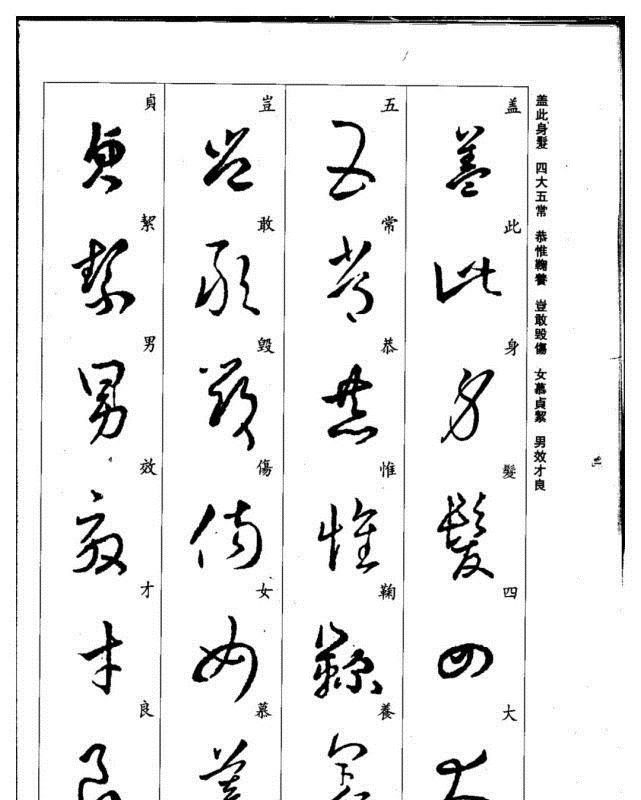 盖此身髮 四大五常 恭惟鞠養 豈敢毀傷 女慕貞絜 男效才良
盖此身髮四大
五常恭惟鞠養
豈敢毀傷女慕
貞絜男效才良